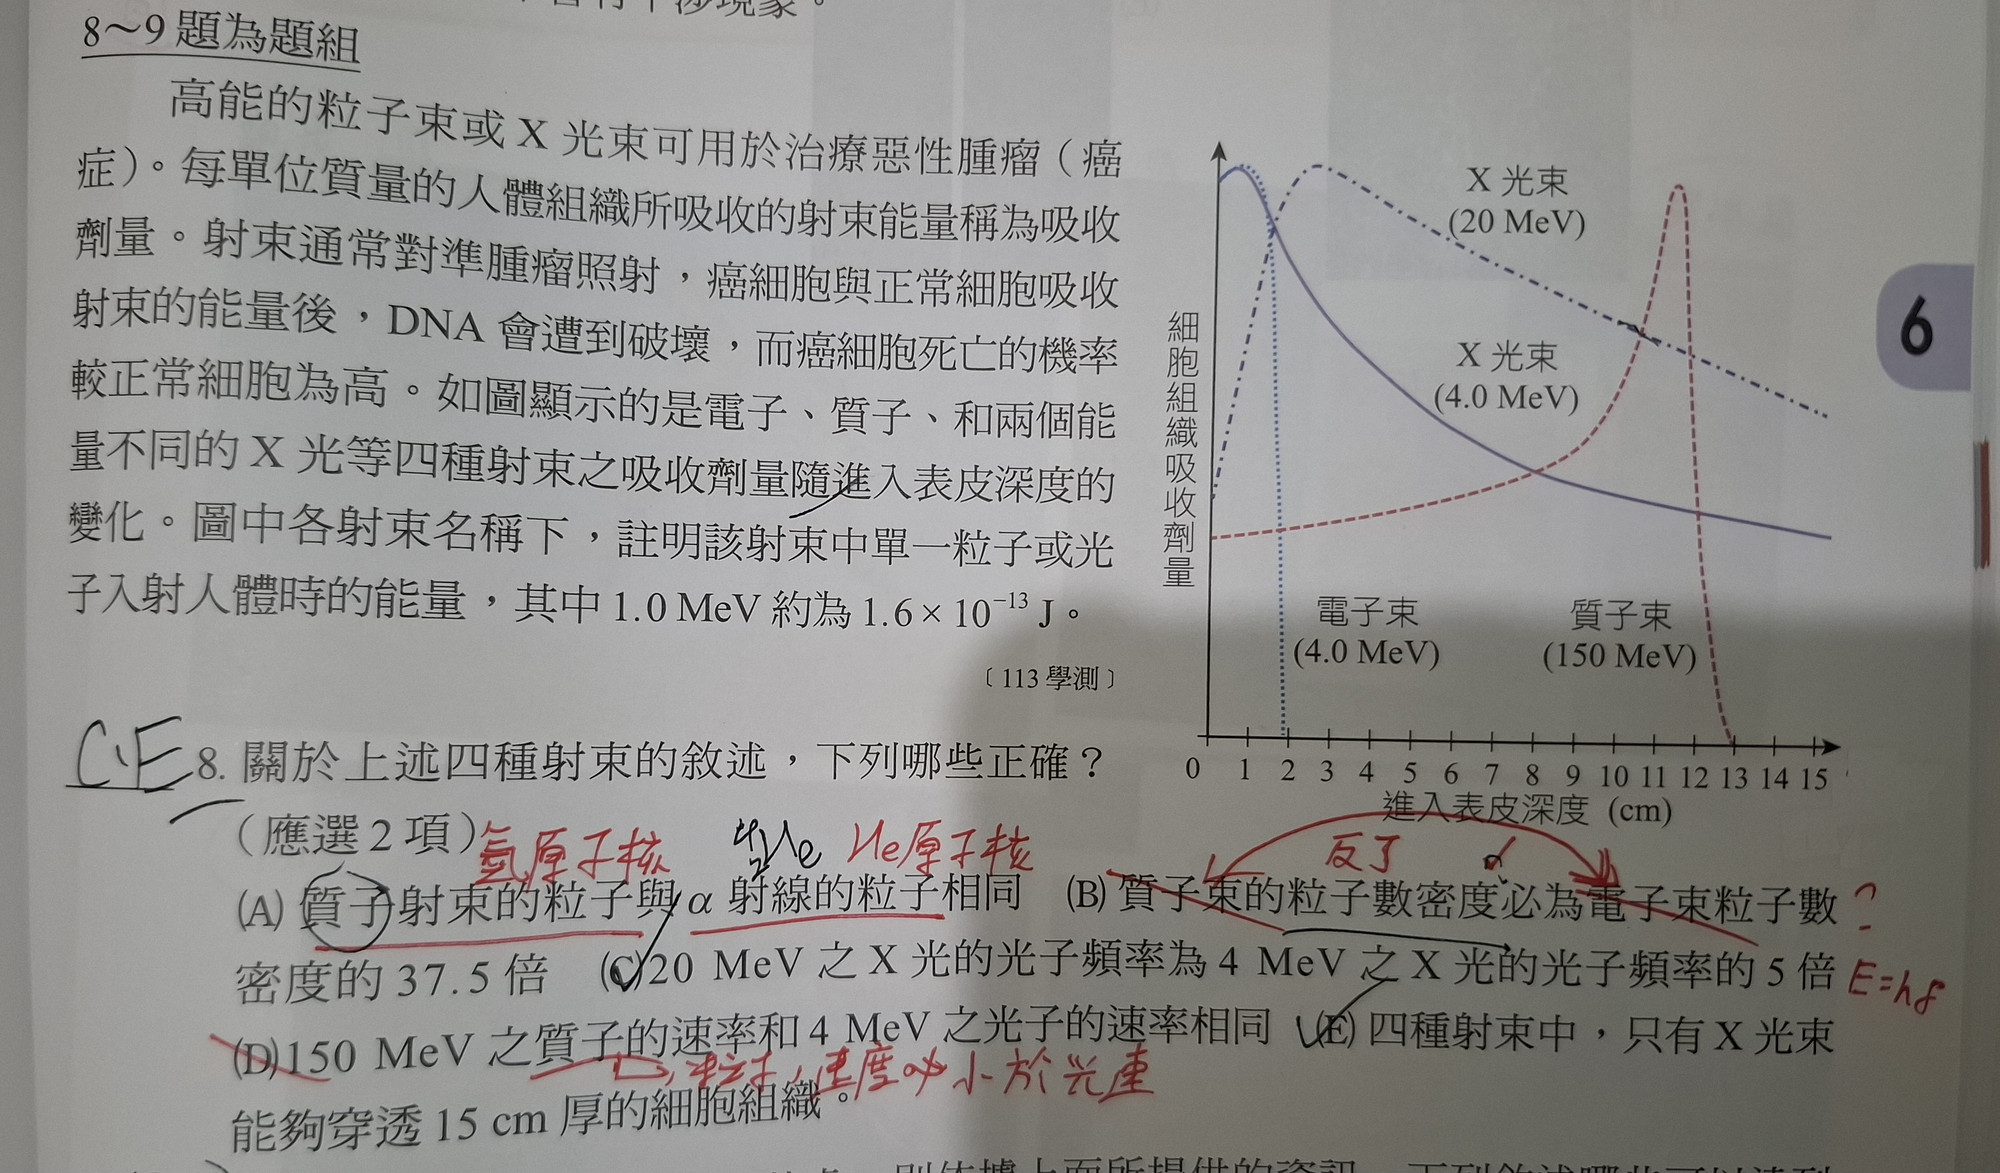 干涉現象。
8～9 題為題組
高能的粒子束或 X 光束可用於治療惡性腫瘤（癌
症）。每單位質量的人體組織所吸收的射束能量稱為吸收
劑量。射束通常對準腫瘤照射，癌細胞與正常細胞吸收
射束的能量後，DNA 會遭到破壞，而癌細胞死亡的機率
較正常細胞為高。如圖顯示的是電子、質子、和兩個能
量不同的 X 光等四種射束之吸收劑量隨進入表皮深度的
變化。圖中各射束名稱下，註明該射束中單一粒子或光
子入射人體時的能量，其中 1.0 MeV 約為 1.6 × 10⁻¹³ J。
〔113 學測〕
X 光束
(20 MeV)
X 光束
(4.0 MeV)
細胞組織吸收劑量
電子束
(4.0 MeV)
質子束
(150 MeV)
0 1 2 3 4 5 6 7 8 9 10 11 12 13 14 15
進入表皮深度 (cm)
6
C、E
8. 關於上述四種射束的敘述，下列哪些正確？
（應選 2 項）
氫原子核 ⁴₂He He原子核 反了
(A) 質子射束的粒子與 α 射線的粒子相同 (B) 質子束的粒子數密度必為電子束粒子數 ?
密度的 37.5 倍 (C) 20 MeV 之 X 光的光子頻率為 4 MeV 之 X 光的光子頻率的 5 倍 E=hf
(D) 150 MeV 之質子的速率和 4 MeV 之光子的速率相同 (E) 四種射束中，只有 X 光束
粒子，速度必小於光速
能夠穿透 15 cm 厚的細胞組織。